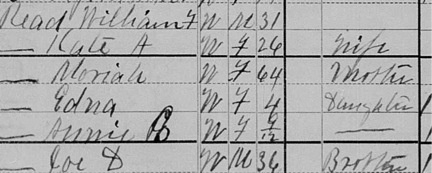 Read William F W M 31
— Kate A W F 26 Wife
— Moriah W F 64 Mother
— Edna W F 4 Daughter 1
— Annie B W F 9/12 — 1
— Joe D W M 36 Brother 1